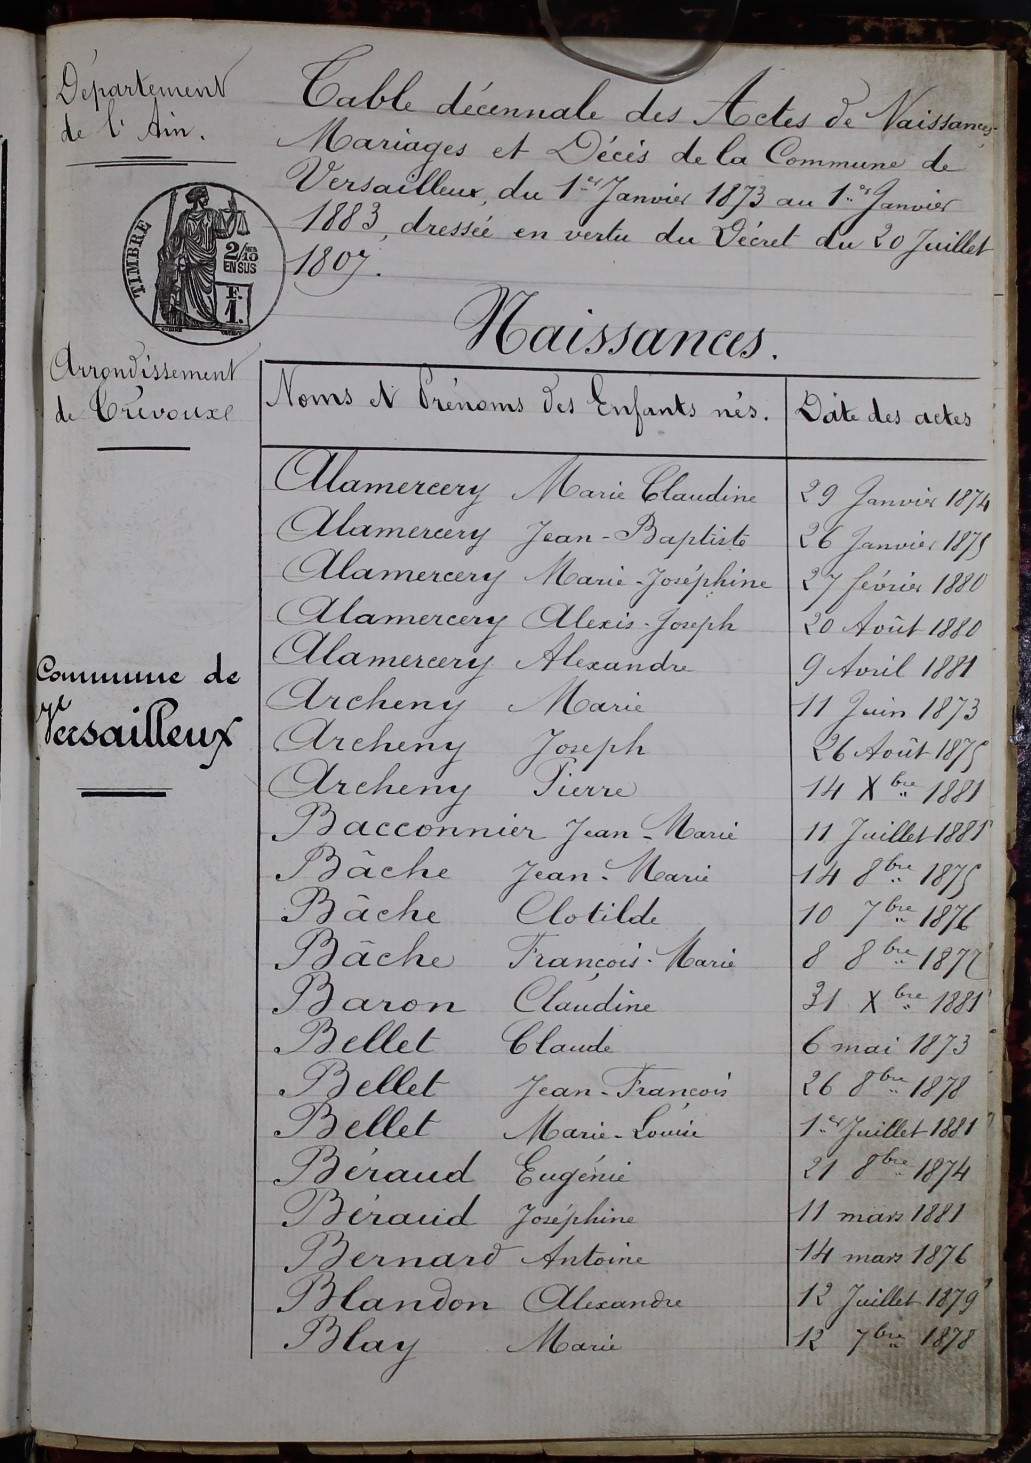 Département
de l'Ain.
Table décennale des Actes de Naissances,
Mariages et Décès de la Commune de
Versailleux, du 1er Janvier 1873 au 1er Janvier
1883, dressée en vertu du Décret du 20 Juillet
1807.
TIMBRE
2/10
EN SUS
F.
1.
Naissances.
Arrondissement
de Trévoux
Noms et Prénoms des Enfants nés. Date des actes
Alamercery Marie Claudine 29 Janvier 1874
Alamercery Jean-Baptiste 26 Janvier 1875
Alamercery Marie-Joséphine 27 février 1880
Alamercery Alexis-Joseph 20 Août 1880
Commune de
Versailleux
Alamercery Alexandre 9 Avril 1881
Archeny Marie 11 Juin 1873
Archeny Joseph 26 Août 1875
Archeny Pierre 14 Xbre 1881
Bacconnier Jean-Marie 11 Juillet 1881
Bâche Jean-Marie 14 8bre 1875
Bâche Clotilde 10 7bre 1876
Bâche François-Marie 8 8bre 1877
Baron Claudine 31 Xbre 1881
Bellet Claude 6 mai 1873
Bellet Jean-François 26 8bre 1878
Bellet Marie-Louise 1er Juillet 1881
Béraud Eugénie 21 8bre 1874
Béraud Joséphine 11 mars 1881
Bernard Antoine 14 mars 1876
Blandon Alexandre 12 Juillet 1879
Blay Marie 12 7bre 1878